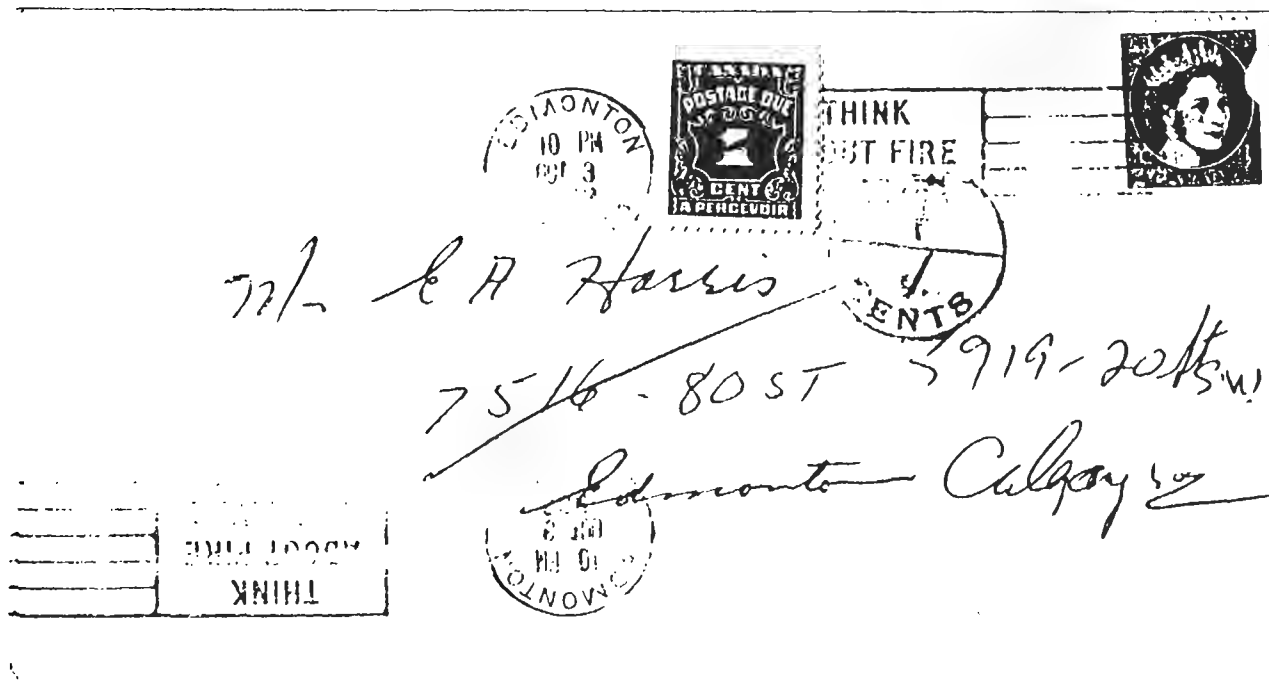 EDMONTON
10 PM
OCT 3
POSTAGE DUE
1
CENT
A PERCEVOIR
THINK
OUT FIRE
1
CENTS
Mr E A Harris
7516 - 80 ST 5919 - 20 St S.W.
Edmonton Calgary
THINK
ABOUT FIRE
EDMONTON
10 PM
OCT 3